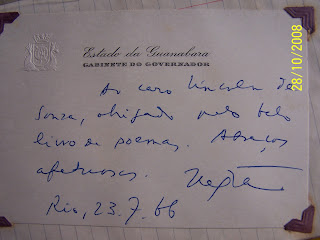 Estado da Guanabara
GABINETE DO GOVERNADOR
Ao caro Lincoln de
Souza, obrigado pelo belo
livro de poemas. Abraços
afetuosos.
Rio, 23.7.66
28/10/2008